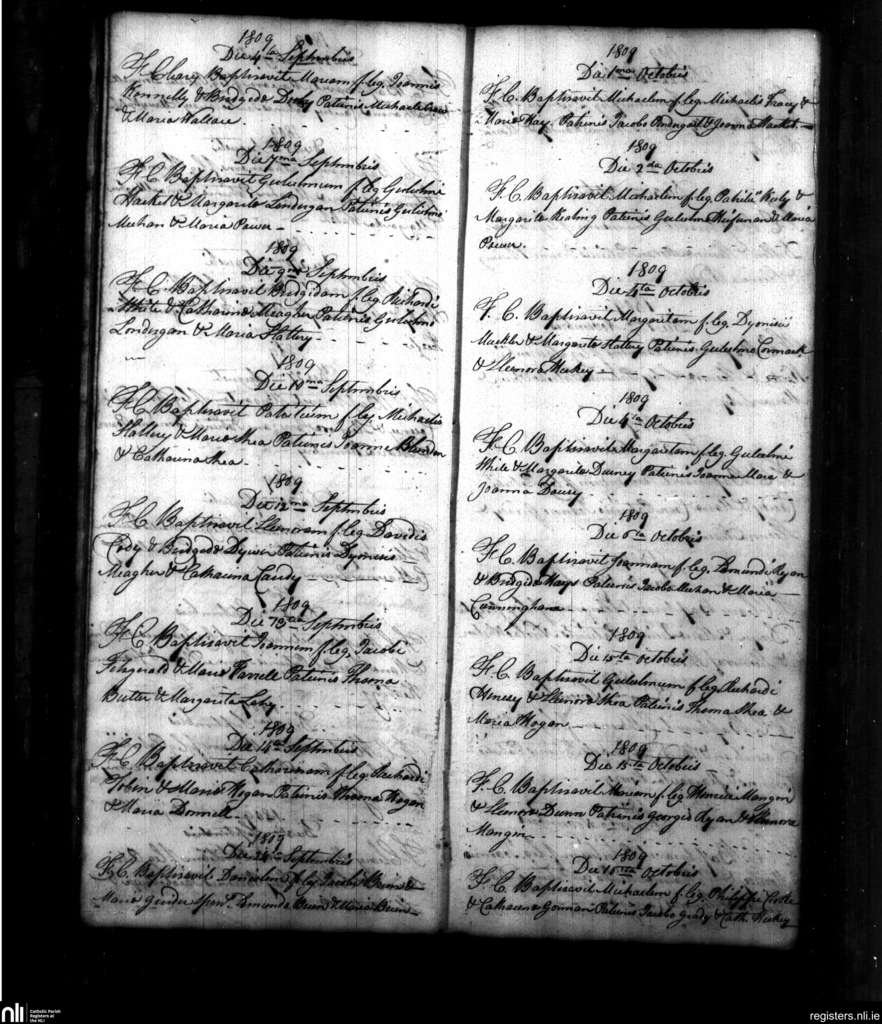 1809
Die 4ta Septembris
F. Cleary Baptisavit Mariam f. leg. Joannis
Konnelly & Bridgeda Derby Patrinis Michaele
& Maria Wallace.
1809
Die 7ma Septembris
F. C. Baptisavit Gulielmum f. leg Gulielmi
Hacket & Margarita Londergan Patrinis Gulielmo
Meehan & Maria Power
1809
Die 9na Septembris
F. C. Baptisavit Bridgidam f. leg. Richardi
White & Catharina Meagher Patrinis Gulielmo
Londergan & Maria Hattery
1809
Die 10ma Septembris
F. C. Baptisavit Patricium f. leg Michaelis
Hattery & Maria Shea Patrinis Joanne Blunden
& Catharina Shea
1809
Die 12ma Septembris
F. C. Baptisavit Elenoram f. leg Davidis
Cody & Bridgeda Dywer Patrinis Dyonisio
Meagher & Catharina Candy
1809
Die 13a Septembris
F. C. Baptisavit Joannem f. leg. Jacobi
Fitzgerald & Maria Farrell Patrinis Thoma
Butler & Margarita Lahy
1809
Die 14a Septembris
F. C. Baptisavit Catharinam f. leg Richardi
Tobin & Maria Hogan Patrinis Thoma Hogan
& Maria Donnell
1809
Die 24a Septembris
F. C. Baptisavit f. leg Jacobi
Maria
1809
Die 1ma Octobris
F. C. Baptisavit Michaelem f. leg. Michaelis Tracy &
Maria Hay. Patrinis Jacobo Prendergast & Joanna Hacket
1809
Die 2da Octobris
F. C. Baptisavit Michaelem f. leg. Patritii Kiely &
Margarita Keating Patrinis Gulielmo Heffernan & Maria
Power.
1809
Die 4ta Octobris
F. C. Baptisavit Margaritam f. leg. Dyonisii
Mackler & Margarita Hattery Patrinis Gulielmo Cormack
& Elenora Hickey
1809
Die 4ta Octobris
F. C. Baptisavit Margaritam f. leg. Gulielmi
White & Margarita Patrinis Joanne Mara &
Joanna
1809
Die 6ta Octobris
F. C. Baptisavit Joannam f. leg. Edmundi Ryan
& Bridgida Hays Patrinis Jacobo Meehan & Maria
Cunningham
1809
Die 15ta Octobris
F. C. Baptisavit Gulielmum f. leg Richardi
& Elenora Shea Patrinis Thoma Shea &
Maria Hogan
1809
Die 15ta Octobris
F. C. Baptisavit Mariam f. leg Mangin
& Elenora Dunn Patrinis Georgio Ryan & Elenora
Mangin
1809
Die Octobris
F. C. Baptisavit Michaelem f. leg. Philippi
& Catharina Gorman Patrinis Jacobo & Cath. Hickey
nli
Catholic Parish
Registers at
the NLI
registers.nli.ie